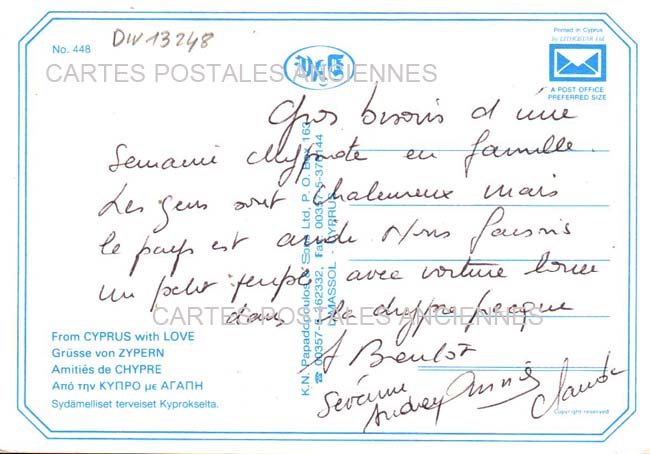 No. 448
DIV 13248
Printed in Cyprus
by LITHOSTAR Ltd.
A POST OFFICE
PREFERRED SIZE
CARTES POSTALES ANCIENNES
Gros bisous d'une
Semaine chypriote en famille.
Les gens sont chaleureux mais
le pays est aride Nous faisons
un petit périple avec voiture louée
dans la chypre grecque
A Bientôt
Séverine
Audrey Annie Claude
CARTES POSTALES ANCIENNES
From CYPRUS with LOVE
Grüsse von ZYPERN
Amitiés de CHYPRE
Από την ΚΥΠΡΟ με ΑΓΑΠΗ
Sydämelliset terveiset Kyprokselta.
K.N. Papadopoulos & Sons Ltd, P. O. Box 163
LIMASSOL - CYPRUS
Copyright reserved